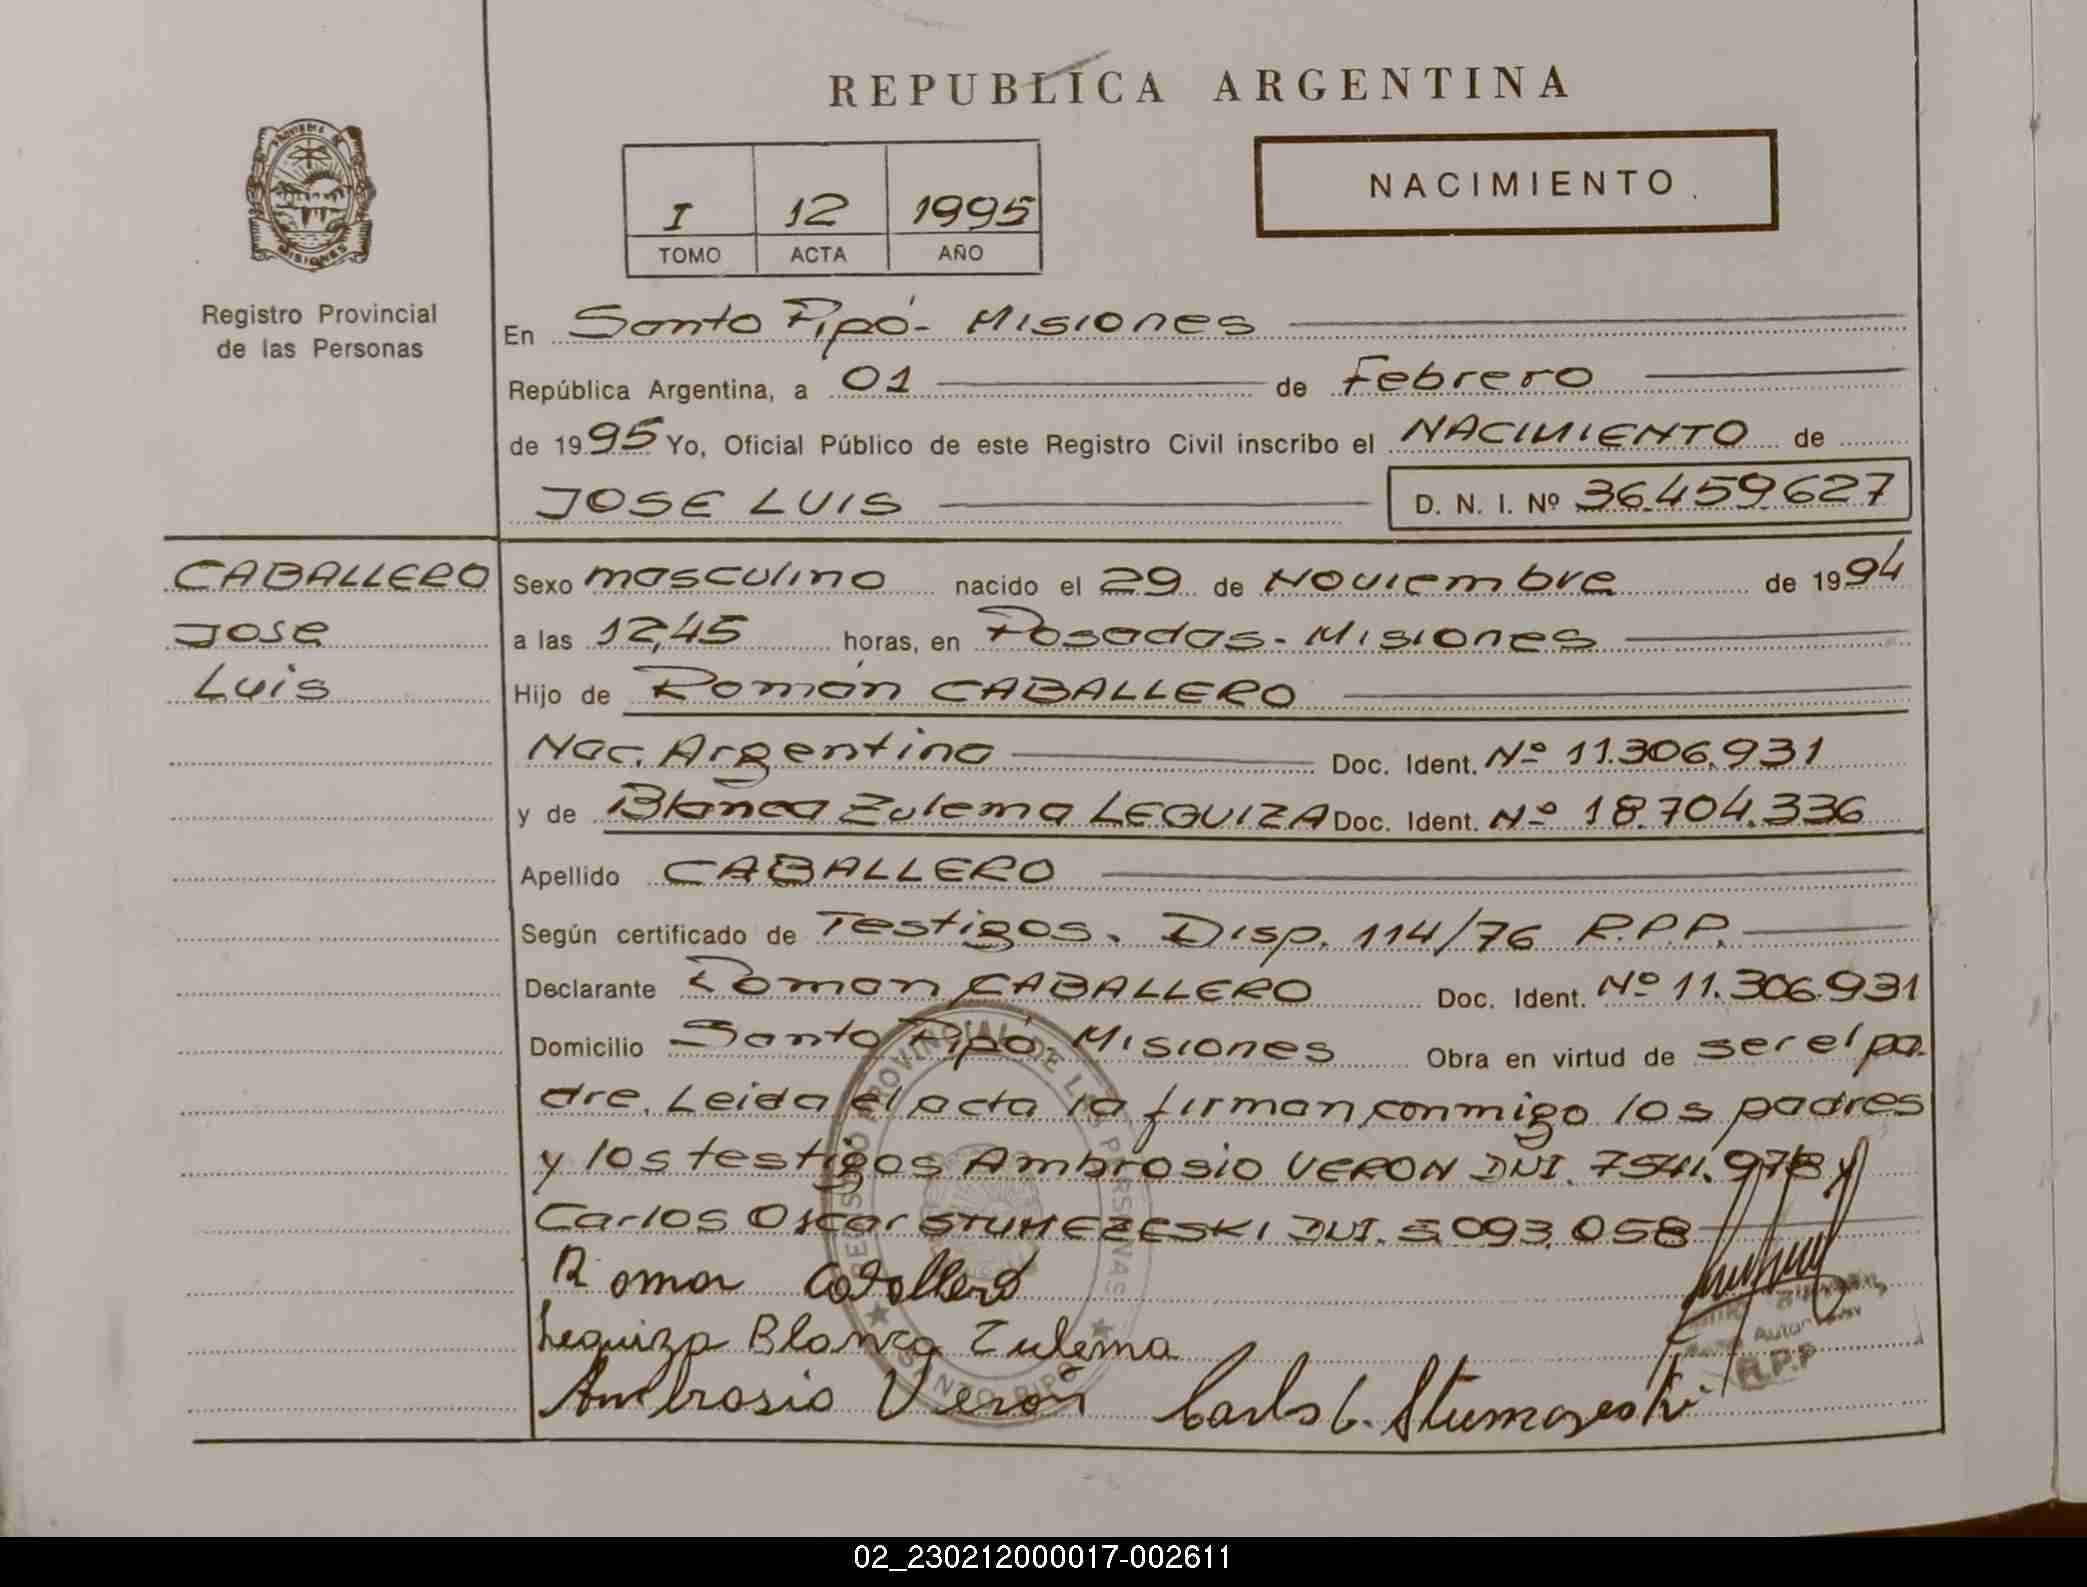 REPUBLICA ARGENTINA
PROVINCIA DE
MISIONES
Registro Provincial
de las Personas
I 12 1995
TOMO ACTA AÑO
NACIMIENTO
En Santo Pipó - Misiones
República Argentina, a 01 de Febrero
de 1995 Yo, Oficial Público de este Registro Civil inscribo el NACIMIENTO de
JOSE LUIS D. N. I. Nº 36.459.627
CABALLERO
Jose
Luis
Sexo masculino nacido el 29 de Noviembre de 1994
a las 12,45 horas, en Posadas - Misiones
Hijo de Román CABALLERO
Nac. Argentina Doc. Ident. Nº 11.306.931
y de Blanca Zulema LEGUIZA Doc. Ident. Nº 18.704.336
Apellido CABALLERO
Según certificado de Testigos. Disp. 114/76 R.P.P.
Declarante Roman CABALLERO Doc. Ident. Nº 11.306.931
Domicilio Santo Pipó Misiones Obra en virtud de ser el pa-
dre. Leida el acta la firman conmigo los padres
y los testigos Ambrosio VERON DNI. 7541.978 y
Carlos Oscar STUMEZESKI DNI. 5.093.058
Roman Caballero
Leguiza Blanca Zulema
Ambrosio Veron Carlos
REGISTRO PROVINCIAL DE LAS PERSONAS
SANTO PIPO
R.P.P
02_230212000017-002611